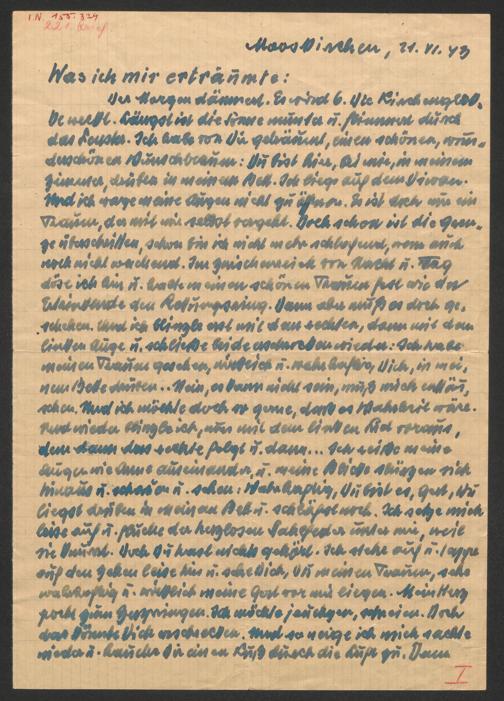 I.N. 155.324
221. Brief
Mooskirchen, 21. VI. 43
Was ich mir erträumte:
Der Morgen dämmert. Es wird 6. Die Kirchenglok-
ke weckt. Längst ist die Sonne munter u. flimmert durch
das Fenster. Ich habe von Dir geträumt, einen schönen, wun-
derschönen Wunschtraum: Du bist hier, bei mir, in meinem
Zimmer, drüben in meinem Bett. Ich liege auf dem Diwan.
Und ich wage meine Augen nicht zu öffnen. Es ist doch nur ein
Traum, der mit mir selbst vergeht. Doch schon ist die Gren-
ze überschritten, schon bin ich nicht mehr schlafend, wenn auch
noch nicht wachend. Im Zwischenreich von Nacht u. Tag
döse ich hin u. halte meinen schönen Traum fest wie der
Ertrinkende den Rettungsring. Dann aber muß es doch ge-
schehen. Und ich blinzle erst mit dem rechten, dann mit dem
linken Auge u. schließe beide erschrocken wieder. Ich habe
meinen Traum gesehen, wirklich u. wahrhaftig, Dich, in mei-
nem Bette drüben.. Nein, es kann nicht sein, muß mich enttäu-
schen. Und ich möchte doch so gerne, daß es Wahrheit wäre.
Und wieder blinzle ich, nur mit dem linken Aug voraus,
dem dann das rechte folgt u. dann... Ich reiße meine
Augen wie Arme auseinander, u. meine Blicke stürzen sich
hinaus u. schauen u. sehen: Wahrhaftig, Du bist es, gest, Du
liegst drüben in meinem Bett u. schläfst noch. Ich setze mich
leise auf u. fluche der herzlosen Sahlfeder unter mir, weil
sie knurrt. Doch Du hast nichts gehört. Ich stehe auf u. tappe
auf den Zehen leise hin u. sehe Dich, Du meinen Traum, sehe
wahrhaftig u. wirklich meine Gest vor mir liegen. Mein Herz
pocht zum Zerspringen. Ich möchte jauchzen, schreien. Doch
das könnte Dich erschrecken. Und so neige ich mich sachte
nieder u. hauche Dir einen Kuß durch die Luft zu. Dann
I